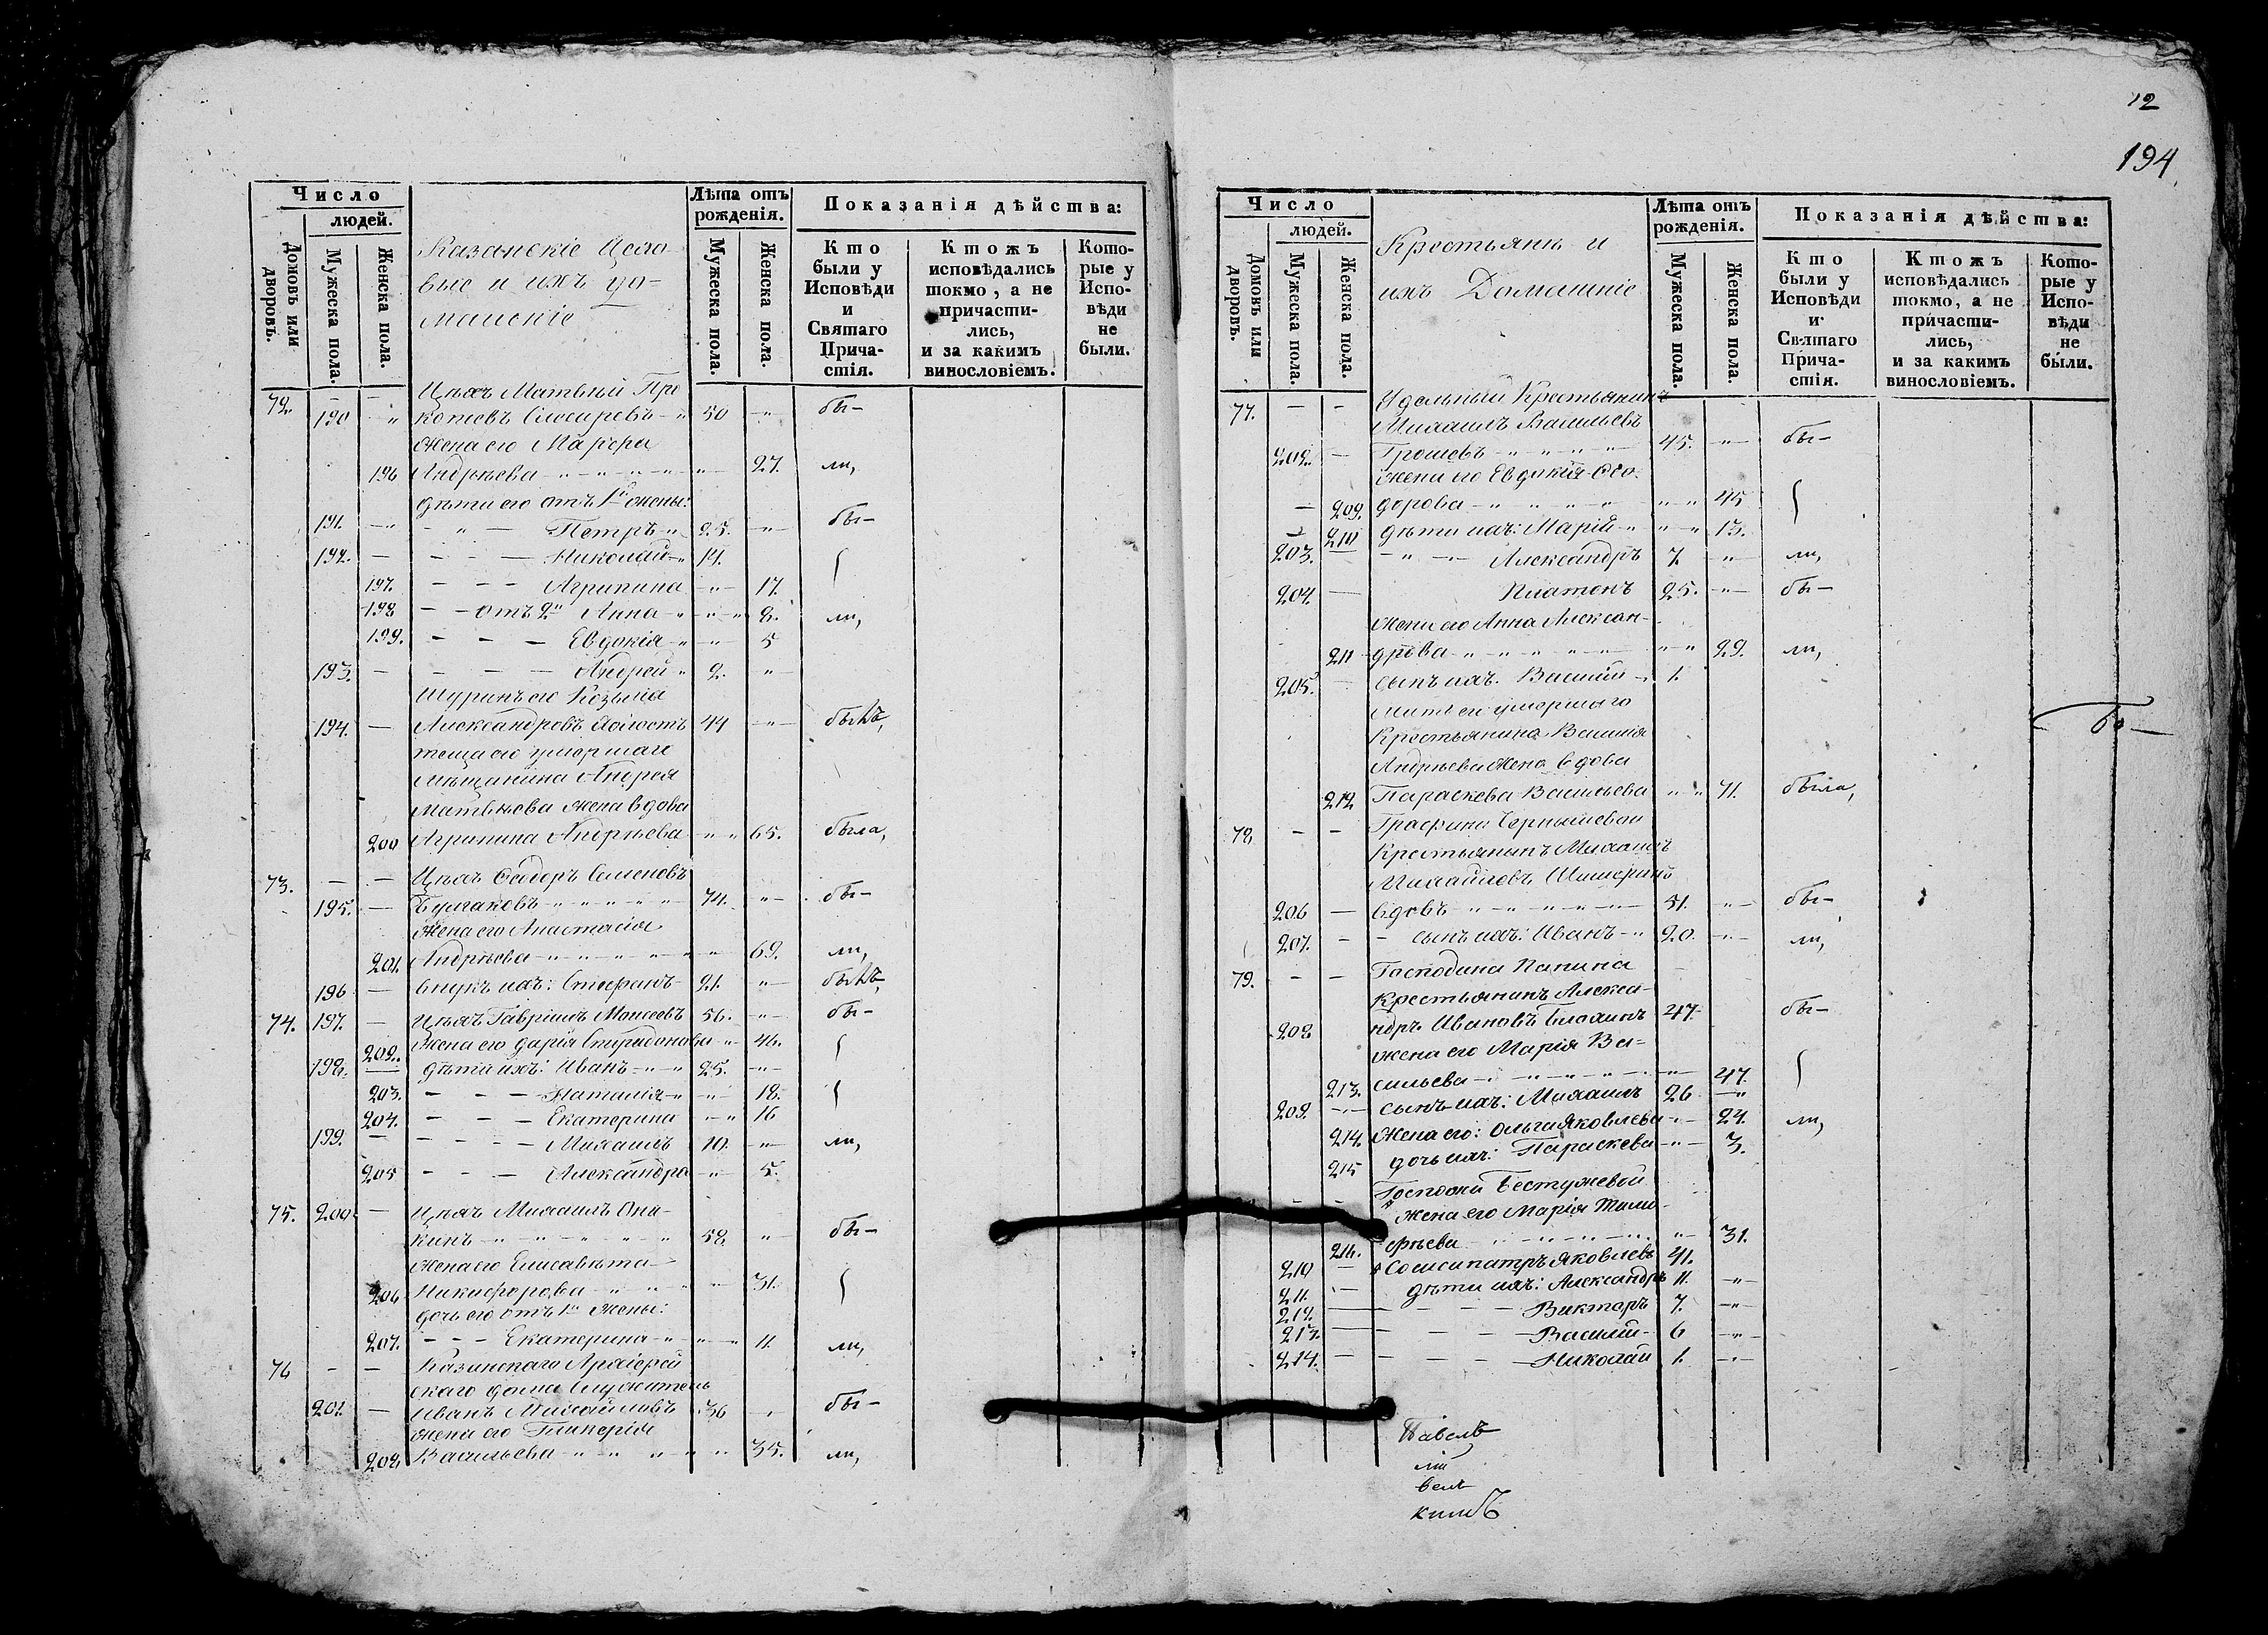 12
194
Число
людей.
Домовъ или дворовъ.
Мужеска пола.
Женска пола.
Казанскіе Цехо-
вые и ихъ до-
машніе
Лѣта отъ рожденія.
Мужеска пола.
Женска пола.
Показанія дѣйства:
Кто были у Исповѣди и Святаго Причастія.
Ктожъ исповѣдались токмо, а не причастились, и за какимъ винословіемъ.
Которые у Исповѣди не были.
72. — — Цѣхъ Матвѣй Про
190 " копьевъ Слесаревъ 50 " бы-
Жена его Марѳа
196 Андрѣева " 27. ли,
дѣти его отъ 1й жены:
191. — Петръ 25. " бы-
192. — Николай 14.
197. Агрипина " 17.
198 отъ 2й Анна " 8. ли,
199. Евдокія " 5
193. — Андрей 2. "
Шуринъ его Козьма
194. — Александровъ холостъ 44 " былъ,
теща его умершаго
Мѣщанина Андрея
Матвѣева жена вдова
200 Агрипина Андрѣева " 65. была,
73. — — Цѣхъ Ѳедоръ Семеновъ
195. — Булгаковъ 74. " бы-
Жена его Анастасія
201. Андрѣева " 69. ли,
196 — внукъ ихъ: Стефанъ 21. " былъ,
74. 197. — Цѣхъ Гавріилъ Моисеевъ 56. " бы-
202. Жена его Дарія Спиридонова " 46.
198. — дѣти ихъ: Иванъ 25. "
203. Наталія " 18.
204. Екатерина " 16
199. — Михаилъ 10. " ли,
205 Александра " 5.
75. 200. — Цѣхъ Михаилъ Они-
кинъ 58. " бы-
Жена его Елисавета
206 Никифорова " 31.
дочь его отъ 1й Жены:
207. Екатерина " 11. ли,
76 — — Казанскаго Архіерей
скаго дома Служитель
201. — Иванъ Михайловъ 36 бы-
Жена его Гликерія
208. Васильева " 35. ли,
Число
людей.
Домовъ или дворовъ.
Мужеска пола.
Женска пола.
Крестьяне и
ихъ Домашніе
Лѣта отъ рожденія.
Мужеска пола.
Женска пола.
Показанія дѣйства:
Кто были у Исповѣди и Святаго Причастія.
Ктожъ исповѣдались токмо, а не причастились, и за какимъ винословіемъ.
Которые у Исповѣди не были.
77. — — Удельный Крестьянинъ
Михаилъ Васильевъ
202. — Грошевъ 45. " бы-
Жена его Евдокія Ѳео-
209. дорова " 45
210 дѣти ихъ: Марія " 13.
203. — Александръ 7. " ли,
204. — Платонъ 25. " бы-
Жена его Анна Алексан-
211 дрова " 29. ли,
205. — сынъ ихъ: Василій 1.
Мать ихъ умершаго
Крестьянина Василія
Андрѣева жена вдова
212 Параскева Васильева " 71. была,
78 — — Графини Чернышевой
Крестьянинъ Михаилъ
206 — вдовъ 51. " бы-
207. — сынъ ихъ: Иванъ 20. " ли,
79. — — Господина Панина
Крестьянинъ Алекса-
208 ндръ Ивановъ 47. бы-
жена его Марія Ва-
213. сильева " 47.
209. сынъ ихъ: Михаилъ 26 "
214. Жена его: Ольга Яковлева " 24. ли,
215 дочь ихъ: Параскева " 3.
— — Госпожи Бестужевой
жена его Марія Тимо-
216. фѣева " 31.
210 — Сосипатръ Яковлевъ 41.
211. — дѣти ихъ: Александръ 11. "
212. — Викторъ 7. "
213. — Василій 6 "
214. — Николай 1. "
Павелъ